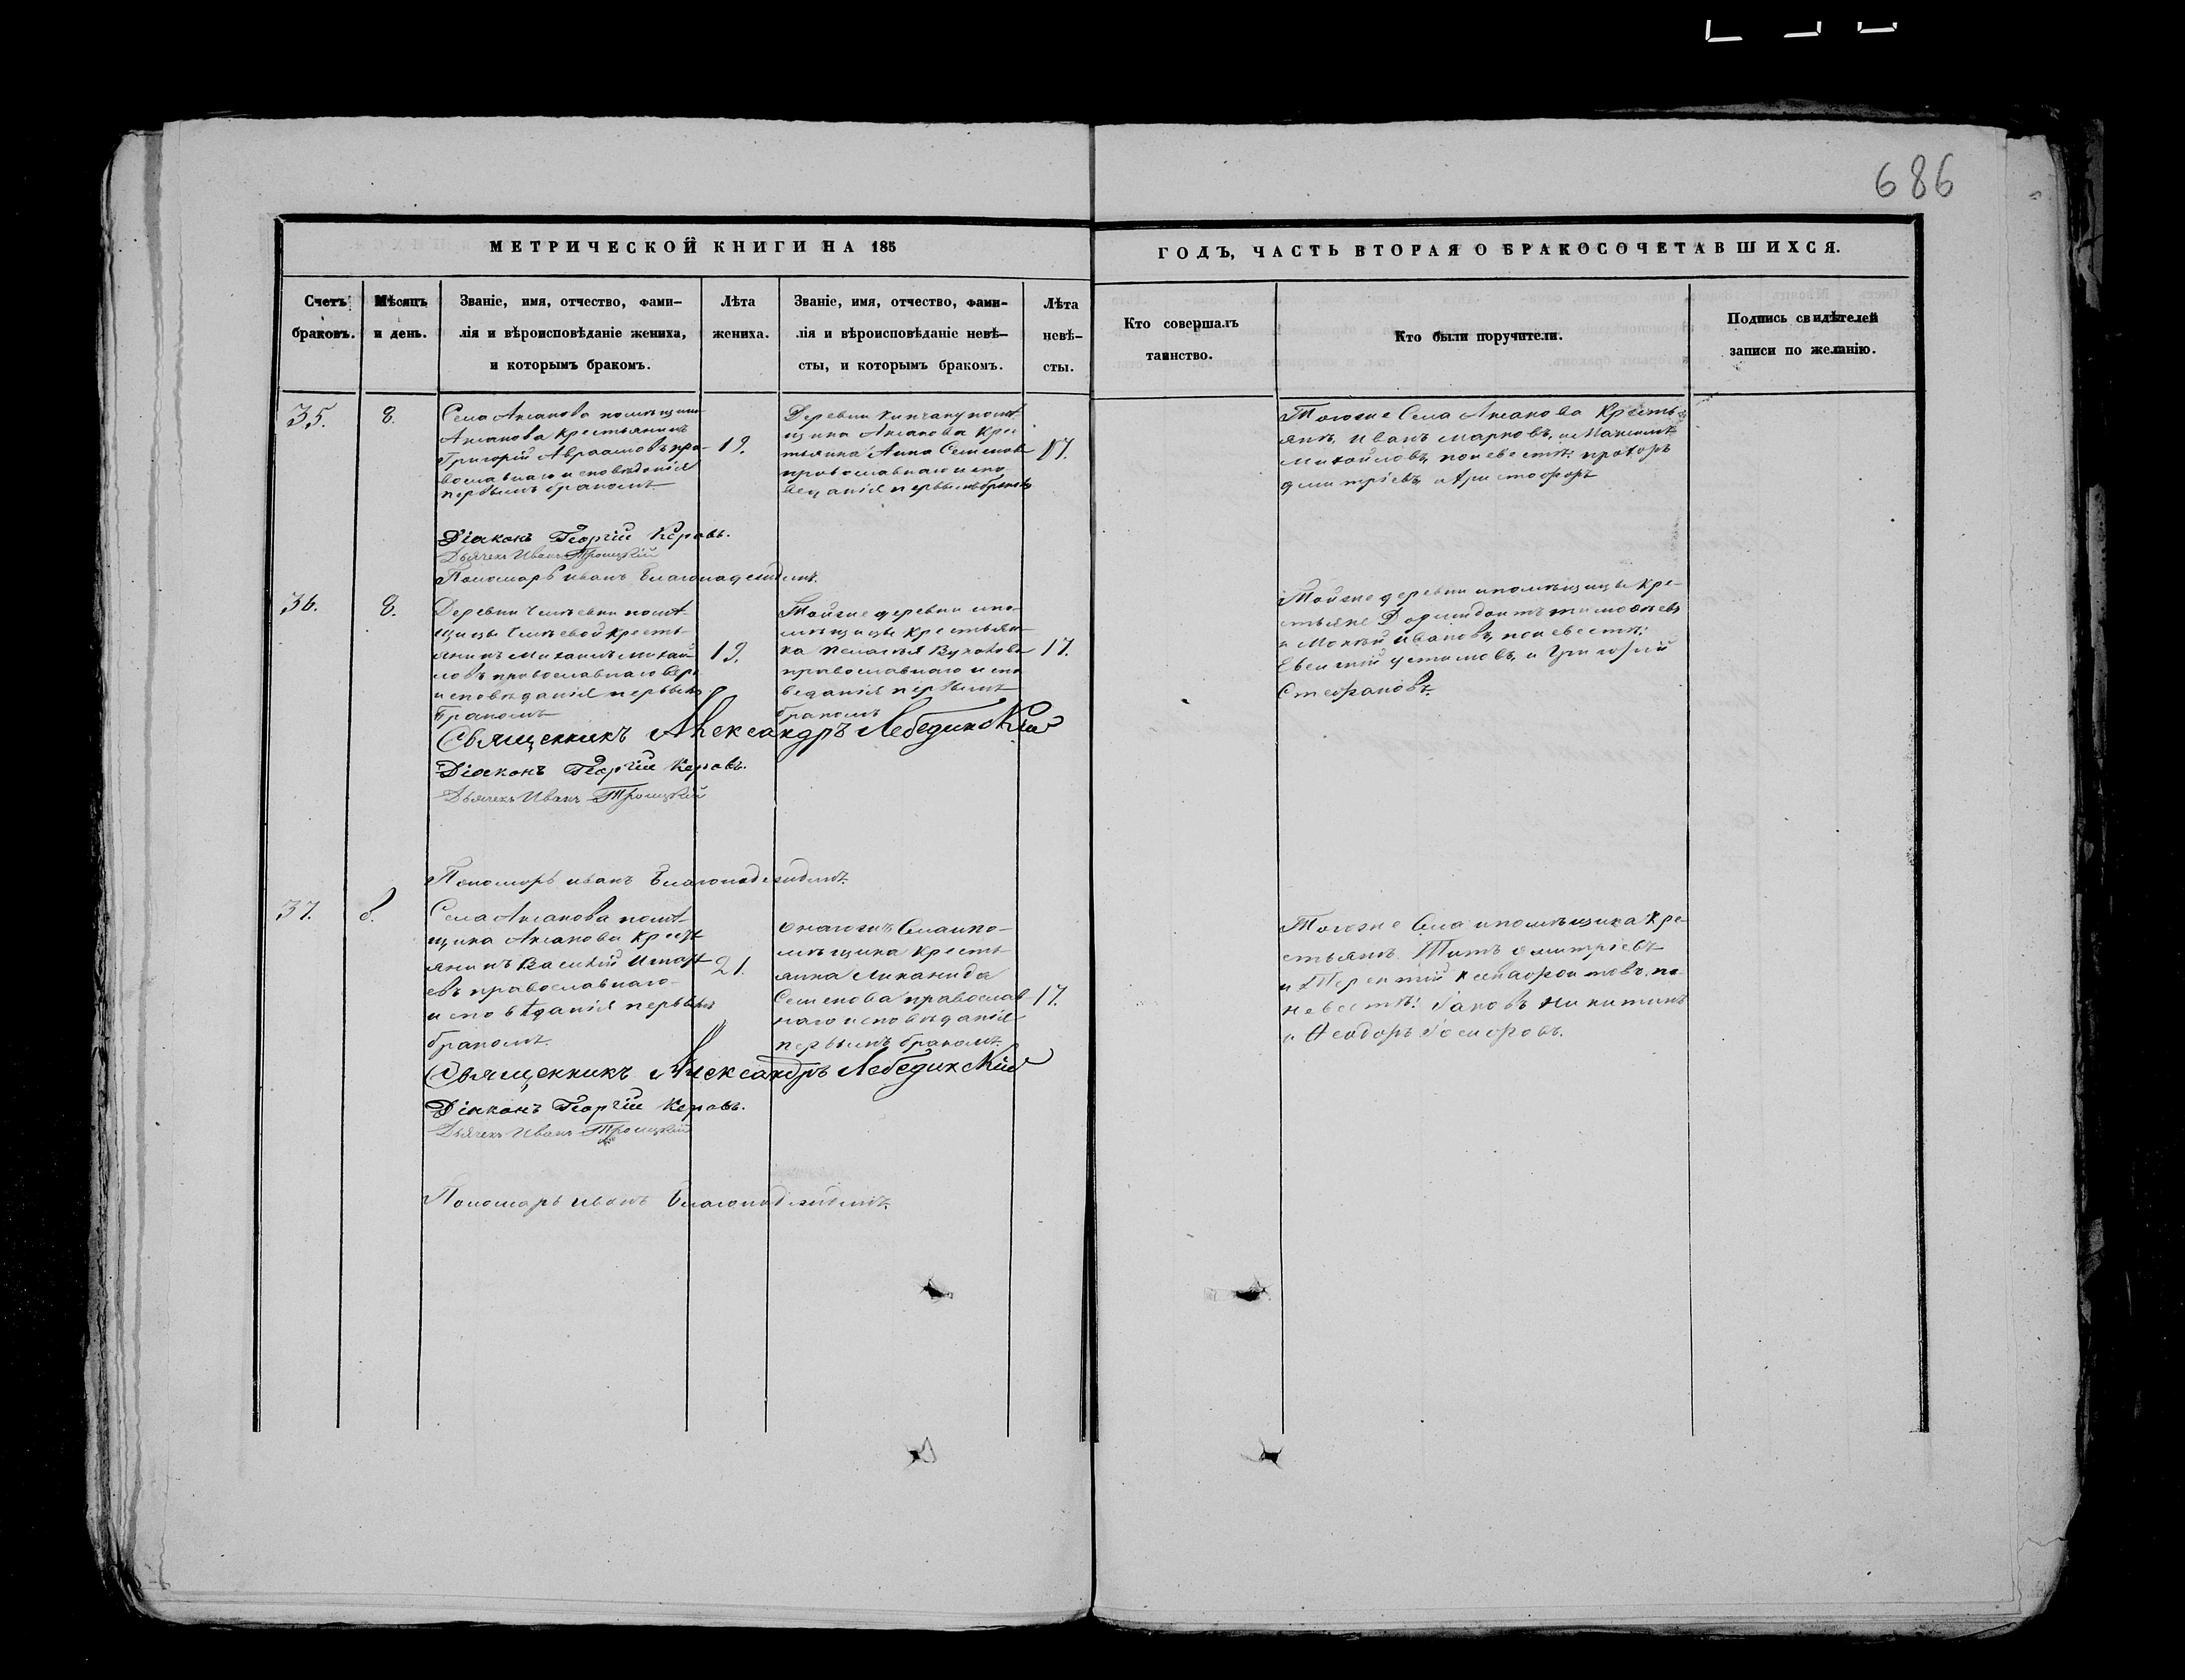 686
МЕТРИЧЕСКОЙ КНИГИ НА 185
ГОДЪ, ЧАСТЬ ВТОРАЯ О БРАКОСОЧЕТАВШИХСЯ.
Счетъ браковъ.
Мѣсяцъ и день.
Званіе, имя, отчество, фами-
лія и вѣроисповѣданіе жениха,
и которымъ бракомъ.
Лѣта
жениха.
Званіе, имя, отчество, фами-
лія и вѣроисповѣданіе невѣ-
сты, и которымъ бракомъ.
Лѣта
невѣ-
сты.
Кто совершалъ
таинство.
Кто были поручители.
Подпись свидѣтелей
записи по желанію.
35.
8.
Села Аксакова помѣщика
Аксакова крестьянинъ
Григорій Авраамовъ пра-
вославнаго исповѣданія
первымъ бракомъ
19.
Деревни помѣ-
щика Аксакова крес
тьянка Анна Семенова
православнаго испо-
веданія первымъ бракомъ
17.
Тогоже Села Аксакова Кресть
яне, Иванъ Марковъ, и Максимъ
Михайловъ, по невестѣ: прохоръ
дмитріевъ, и христофоръ
Діаконъ Георгій Керовъ.
Дьячекъ Иванъ Троицкій
Пономарь иванъ
36.
8.
Деревни помѣ-
щицы кресть-
янинъ Михаилъ Михай-
ловъ православнаго
исповѣданія первымъ
бракомъ
19.
Тойже деревни и по-
мѣщицы крестьян-
ка Пелагія
православнаго испо
веданія первымъ
бракомъ
17.
Тойже деревни и помѣщицы кре-
стьяне Дормидонтъ тимофѣевъ
и Мокій ивановъ, по невестѣ:
Евсигній устиновъ, и Григорій
Стефановъ.
Священникъ Александръ Лебединскій
Діаконъ Георгій Керовъ.
Дьячекъ Иванъ Троицкій
Пономарь иванъ
37.
8.
Села Аксакова помѣ-
щика Аксакова крест
янинъ Василій
евъ православнаго
исповѣданія первымъ
бракомъ.
21.
онагожъ Села и по-
мѣщика кресть-
янка
Семенова православ
наго исповѣданія
первымъ бракомъ.
17.
Тогоже Села и помѣщика Кре-
стьяне Титъ дмитріевъ
и Терентій Ксенофонтовъ, по
невестѣ: Іаковъ Никитинъ
и Ѳеодоръ
Священникъ Александръ Лебединскій
Діаконъ Георгій Керовъ.
Дьячекъ Иванъ Троицкій
Пономарь иванъ